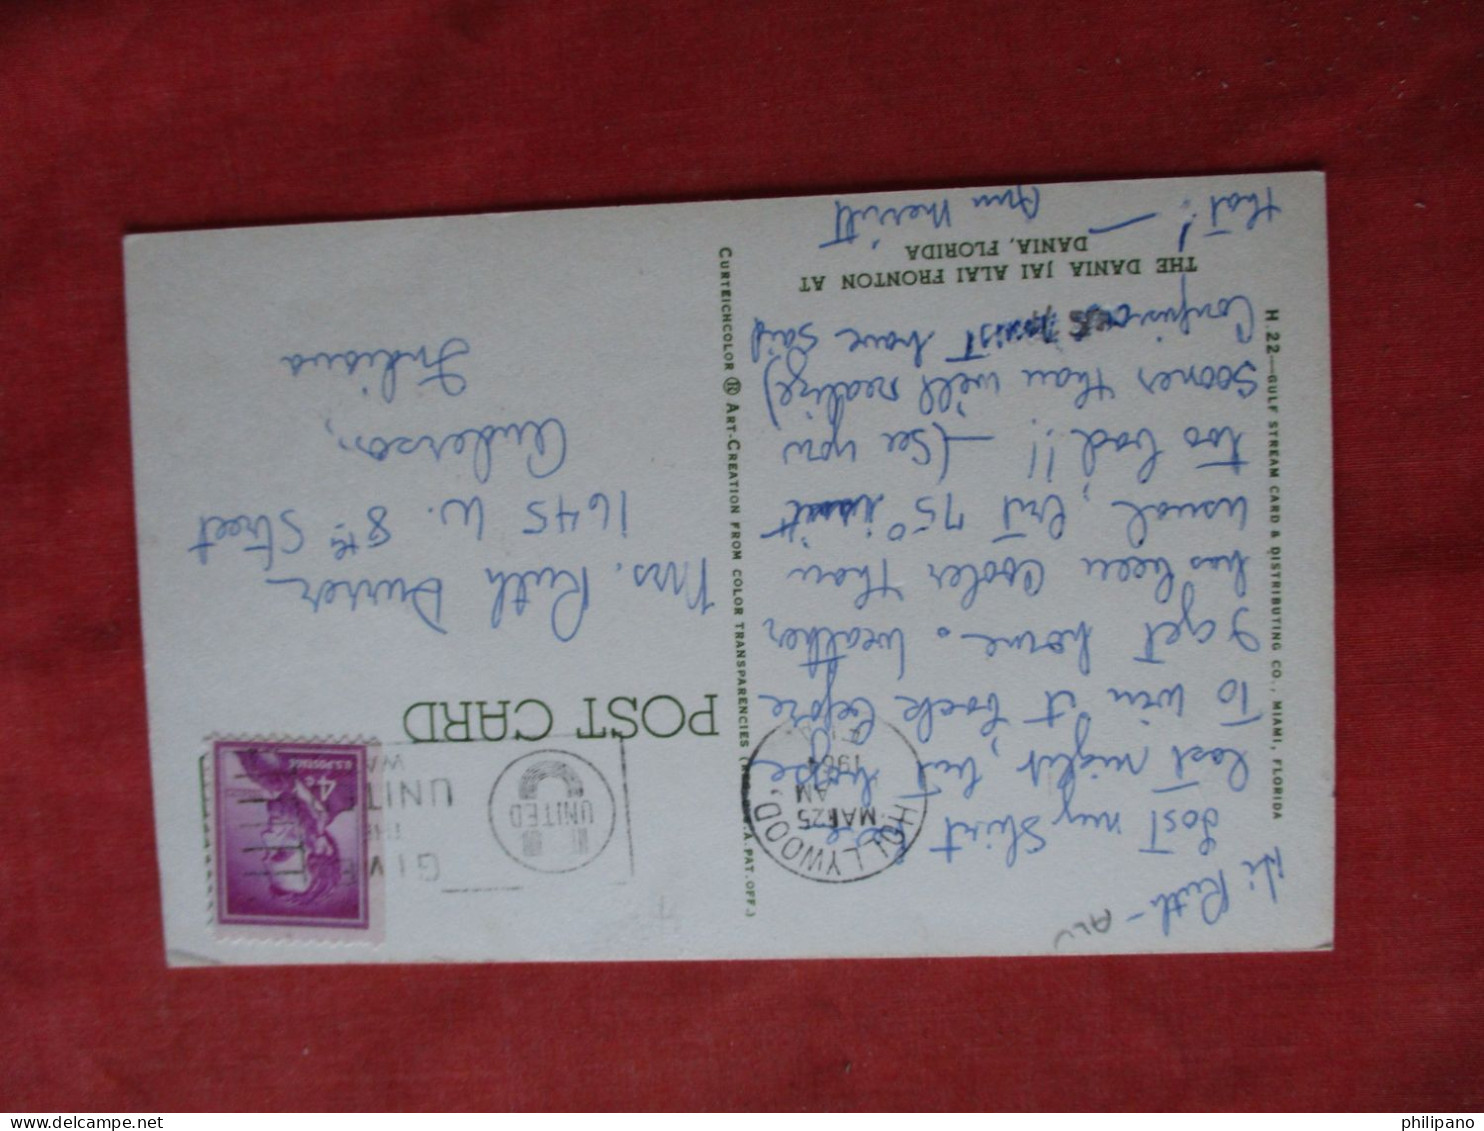 Hi Ruth – 
Lost my shirt
last night, but hope
To win it back before
I get home. Weather
has been cooler than
usual, but 75° isn't
too bad!! – (See you
sooner than we'll realize)
Confusious must have said
that! —
Ann Merritt
THE DANIA JAI ALAI FRONTON AT
DANIA, FLORIDA
H. 22—GULF STREAM CARD & DISTRIBUTING CO., MIAMI, FLORIDA
CURTEICHCOLOR ® ART-CREATION FROM COLOR TRANSPARENCIES (REG. U.S.A. PAT. OFF.)
POST CARD
HOLLYWOOD,
MAR 25
AM
GIVE
THE
UNITED
WAY
UNITED
U.S. POSTAGE
4¢
Mrs. Ruth
1645 W. 8th Street
Anderson,
Indiana
philipano